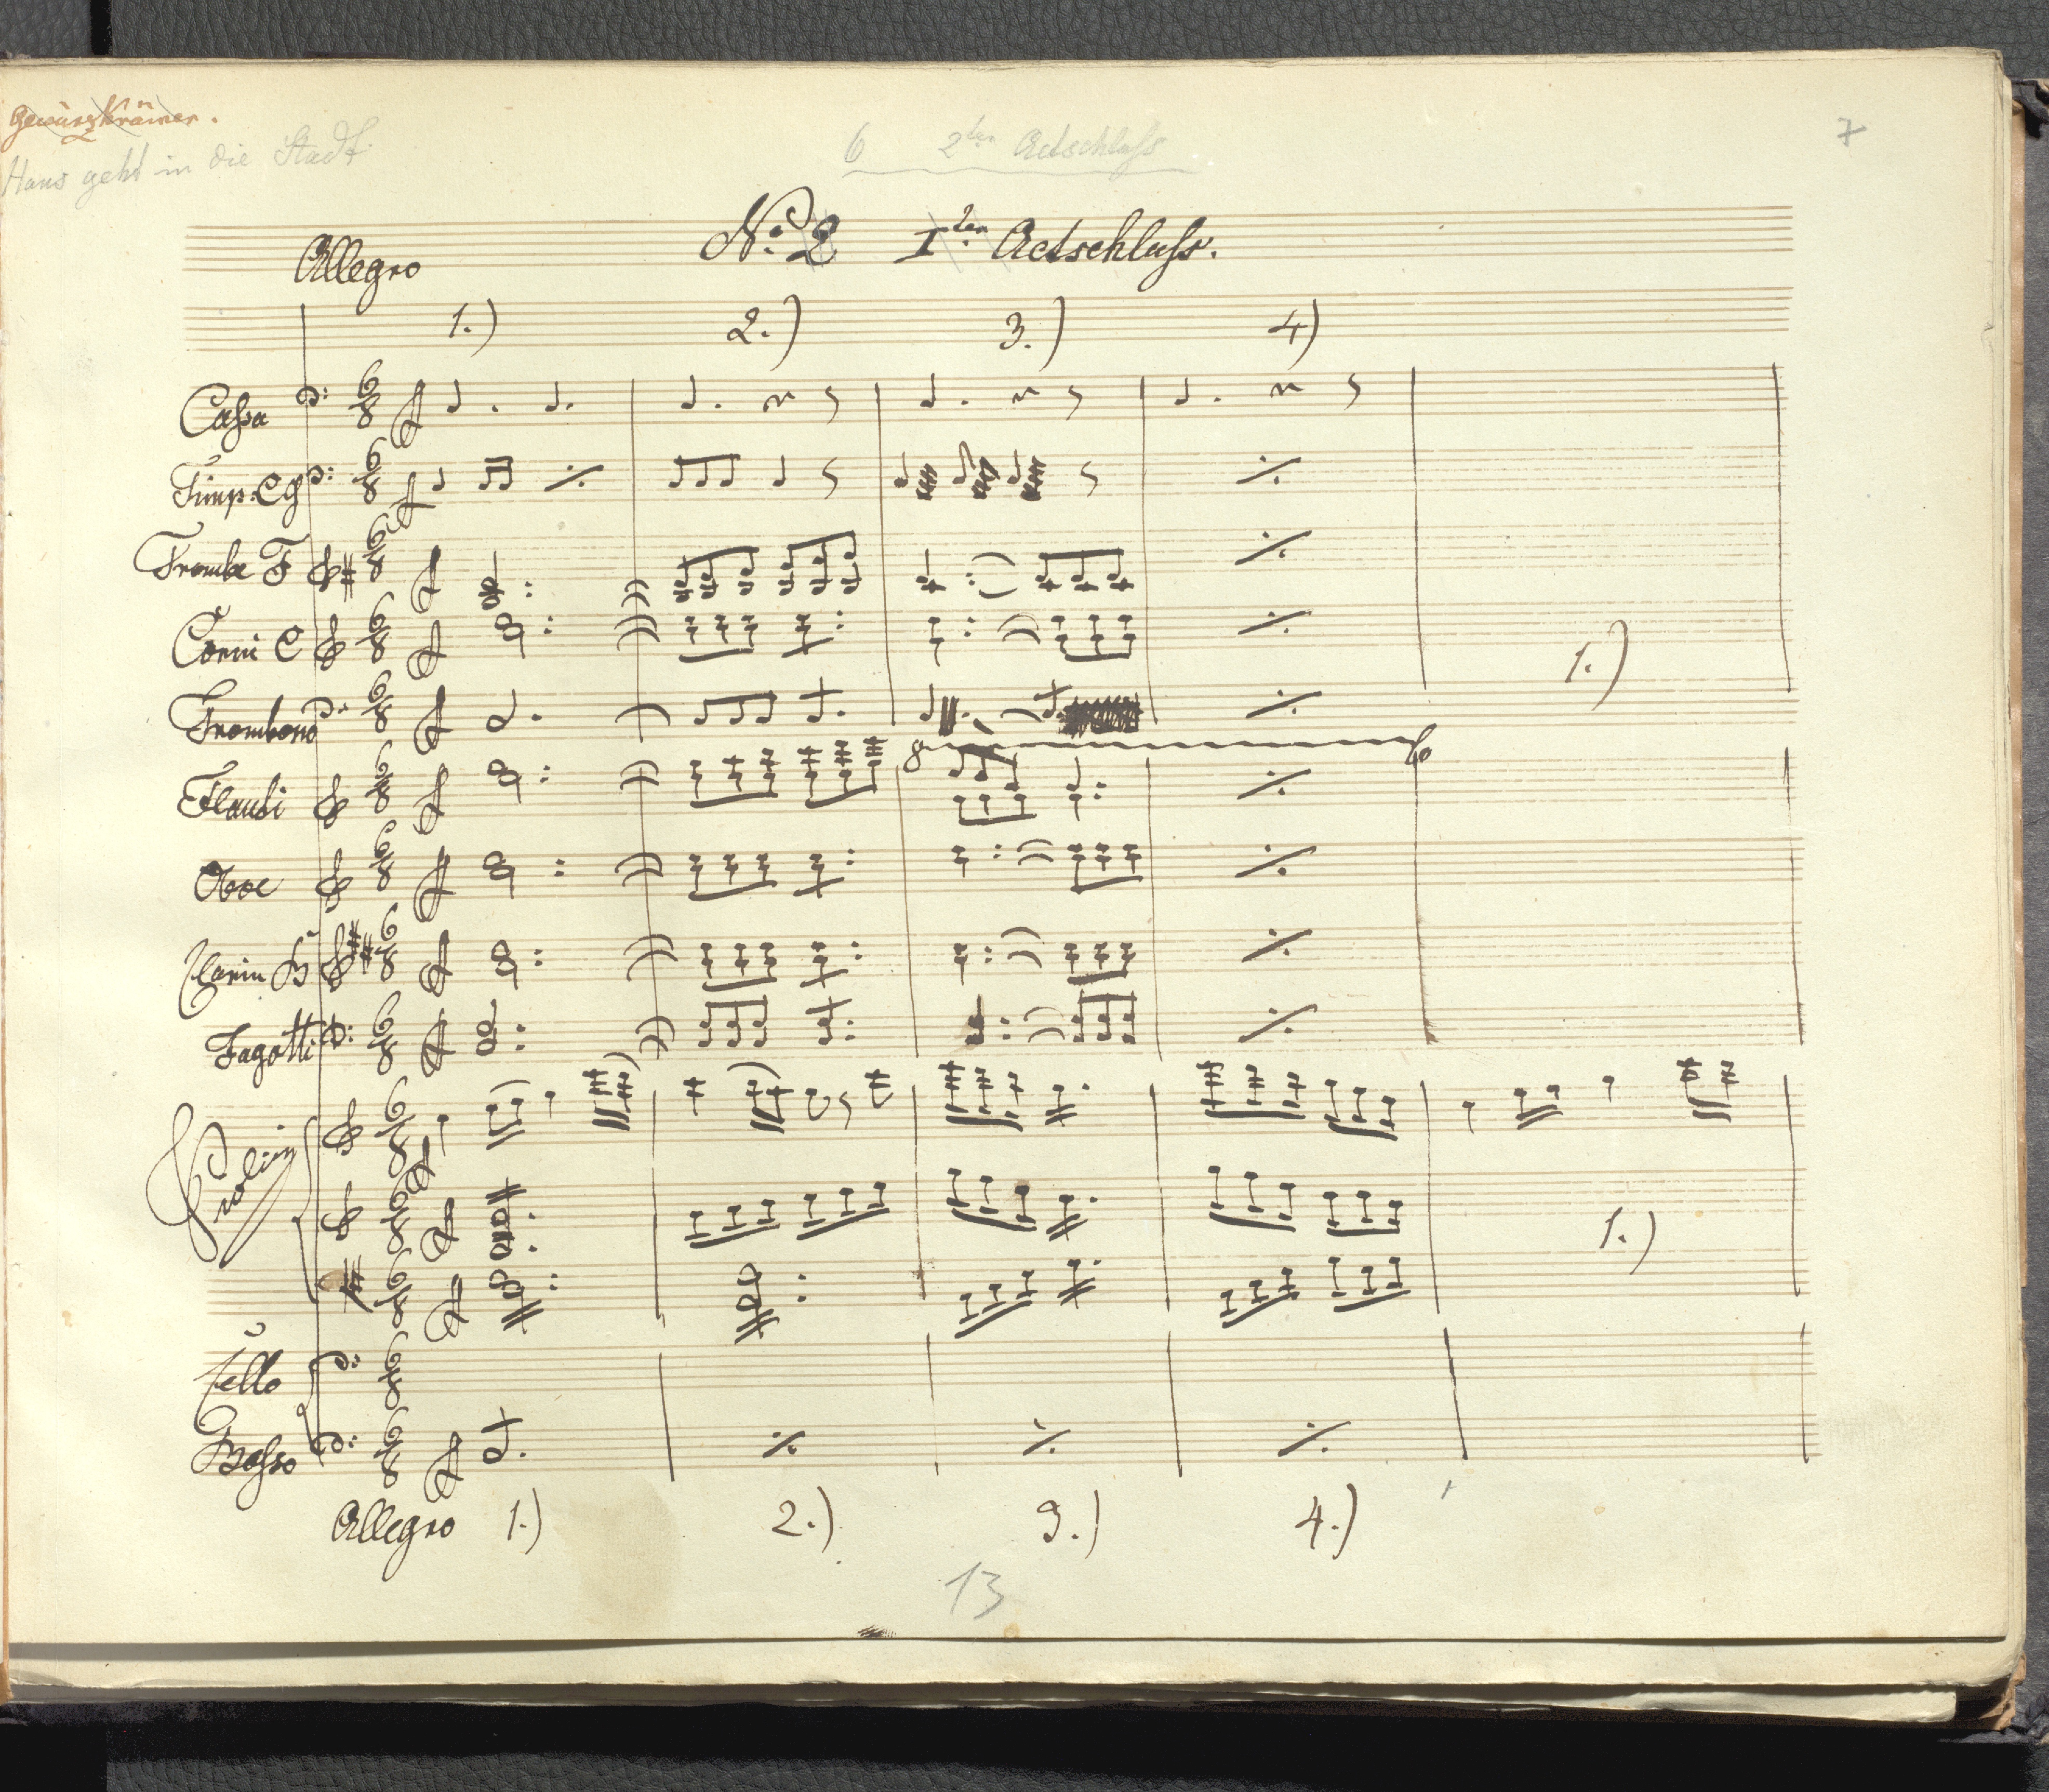 Gewürzkrämer.
Hans geht in die Stadt.
6 2ter Actschluß
7
No: 2 1ter Actschluß.
Allegro
1.) 2.) 3.) 4)
Cassa
Timp: CG
Trombe F
Corni C
1.)
Trombono
8
Flauti
Oboe
Clarin B
Fagotti
Violin
1.)
Cello
Basso
Allegro 1.) 2.) 3.) 4.)
13